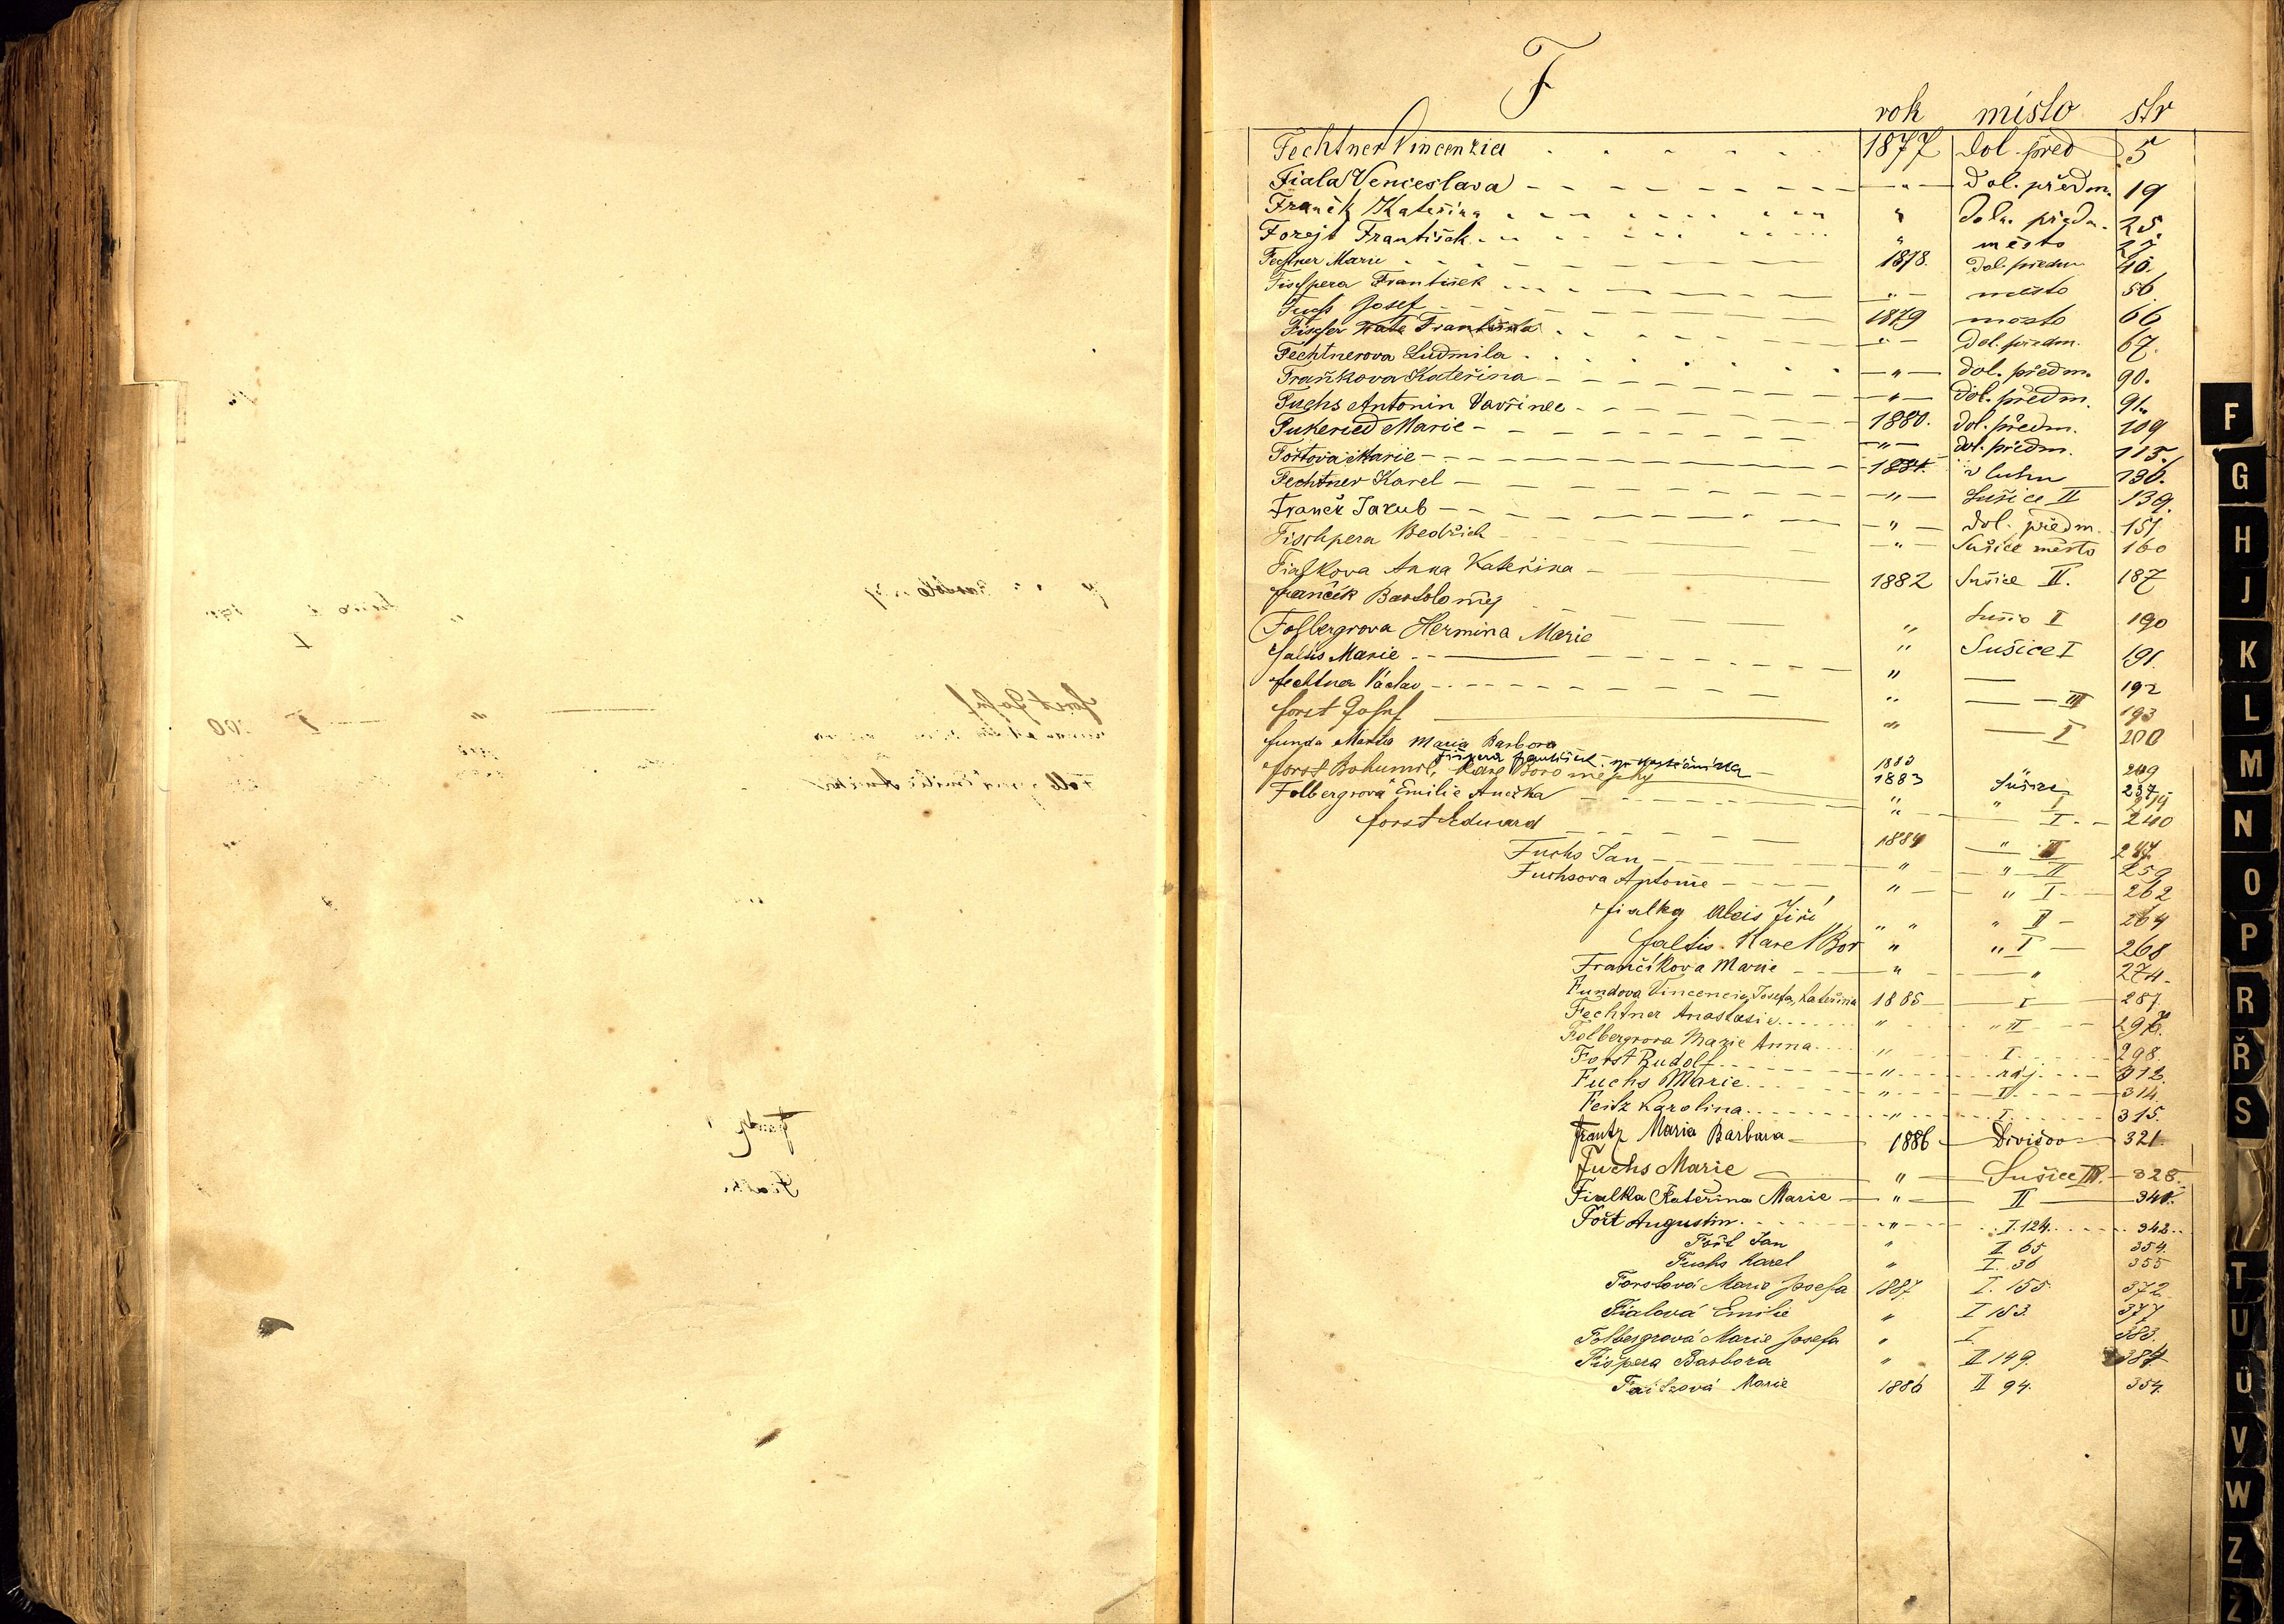 F
rok místo str
Fechtner Vincenzia 1877 dol. před 5
Fiala Venceslava — " — Dol. předm. 19
Franěk Kateřina " Doln. předm. 25.
Forejt František " město 27.
Fechtner Marie 1878. Dol. předm 40.
Fischpera František — " — město 56
Fuchs Josef 1879 město 66
Fischer Františka — " — Dol. předm. 67.
Fechtnerova Ludmila — " — Dol. předm. 90.
Kateřina — " — Dol. předm. 91.
Fuchs Antonin Vavřinec 1880. Dol. předm. 109
Marie — " — dol. předm. 115.
Fořtova Marie 1881. v luhu 136.
Fechtner Karel — " — Sušice II 139.
Jakub — " — Dol. předm. 151
Fischpera Bedřich — " — Sušice město 160
Fialkova Anna Kateřina 1882 Sušice II. 187
Frančík Bartoloměj " I 190
Folbergrova Hermina Marie " Sušice I 191.
Faltis Marie " — 192
Fechtner Václav " — III 193
Forst Josef " — I 200
Funda Maria Barbora 209
Fišpera František 1883 Sušice 237
Forst Bohumil, Karel Boromejský " " I
Folbergrová Emilie Anežka " I 240
Forst Eduard 1884 — " III 247.
Fuchs Jan — " — " — II 259
Fuchsova Antonie " — " I 262
Fialka Alois Jiří " " " II — 264
Faltis Karel Bor " " I — 268
Frančíkova Marie — " — " 274.
Fundova Vincencie, Josefa, Kateřina 1885 — I — 287.
Fechtner Anastasie " " II
Folbergrova Marie Anna " I 298.
Forst Rudolf " ráj 312.
Fuchs Marie " II 314.
Feitz Karolina " I 315.
Frantz Maria Barbara 1886 Divišov 321.
Fuchs Marie — " — Sušice III. 328.
Fialka Kateřina Marie — " — II — 341.
Fořt Augustin — " — I. 124. 342.
Fořt Jan " II 65 354.
Fuchs Karel " I. 36 355
Forstová Marie Josefa 1887 I. 155. 372
Fialová Emilie " I 153. 377
Folbergrová Marie Josefa " I 383.
Fišpera Barbora " II 149. 384
Faitzová Marie 1886 II 94. 354.
F
G
H
J
K
L
M
N
O
P
R
Ř
S
T
U
Ü
V
W
Z
Ž